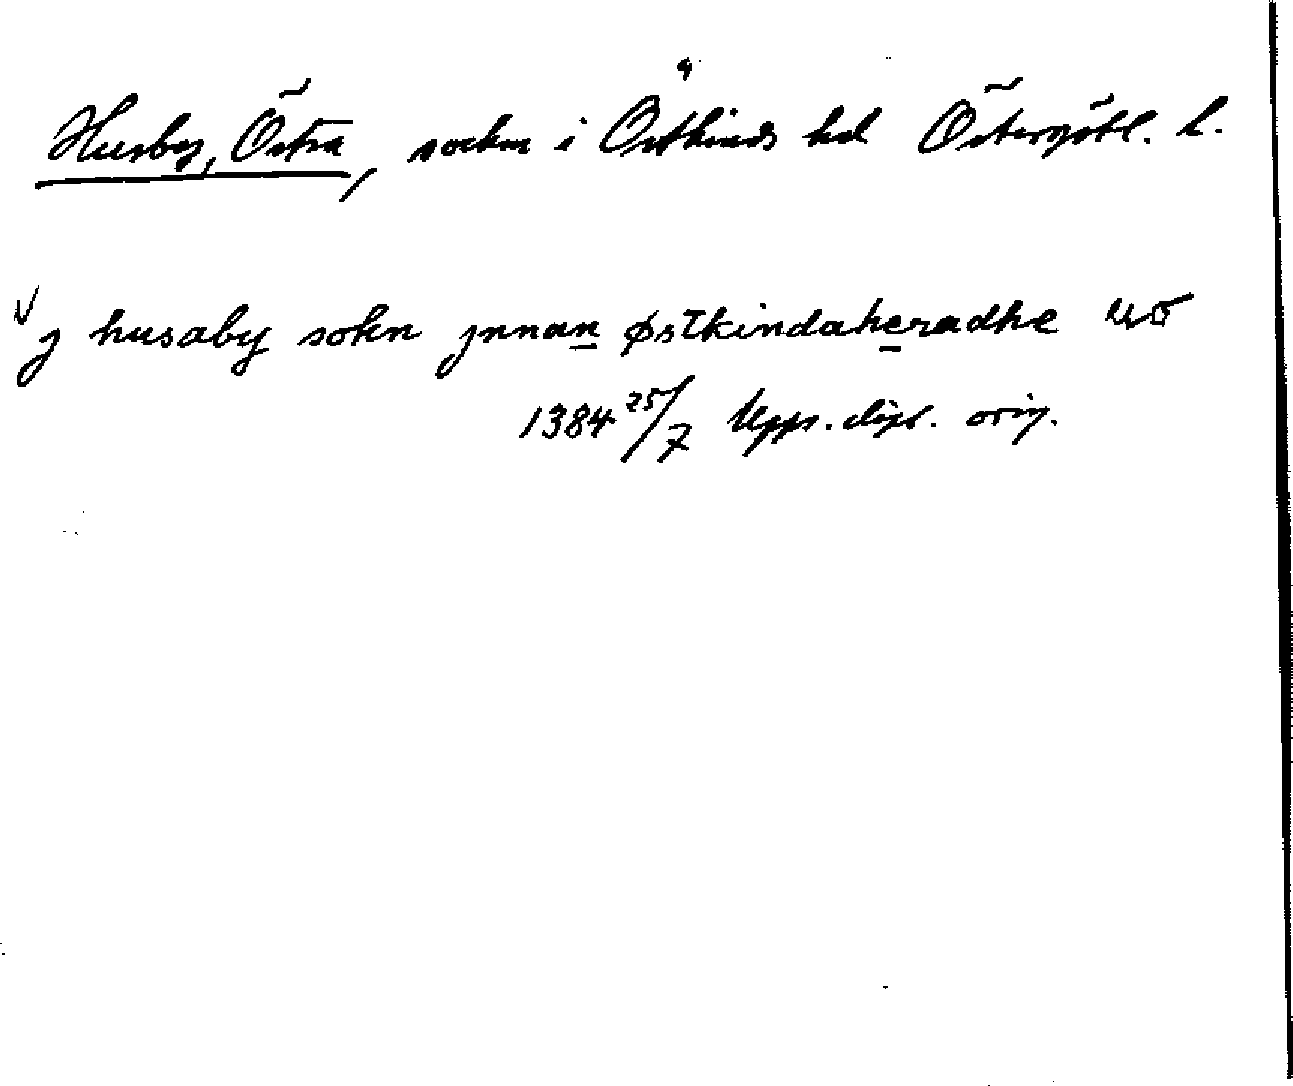 Husby, Östra, socken i Östkinds hd Östergötl. l.
j husaby sokn jnnan østkindaheradhe UO
1384 25/7 Upps. dipl. orig.